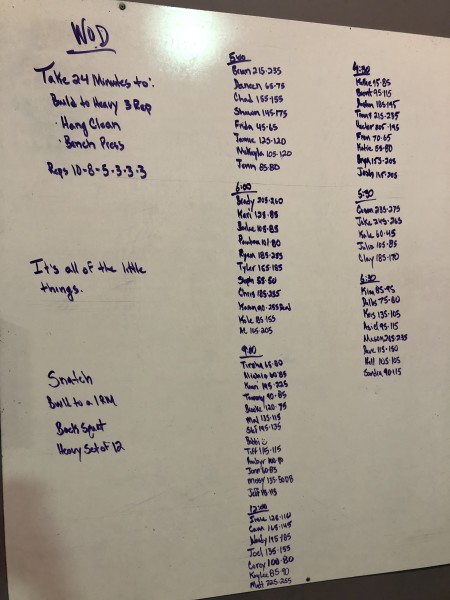 W.O.D
Take 24 Minutes to:
Build to Heavy 3 Rep
· Hang Clean
· Bench Press
Reps 10-8-5-3-3-3
It's all of the little
things.
Snatch
Build to a 1RM
Back Squat
Heavy Set of 12
5:00
Brian 215-235
Daneen 65-75
Chad 155-155
Shannon 145-175
Frida 45-65
Jamie 125-120
Makayla 105-120
Jenn 85-80
6:00
Brady 205-260
Kari 125-85
Bailee 105-85
101-80
Ryan 185-255
Tyler 155-185
Steph 55-50
Chris 185-235
Kole 85-155
M. 165-205
9:00
Tirzha 65-80
Michele 60-85
Kari 145-225
Tammy 90-85
Brooke 120-75
Mal 135-115
Stef 145-135
Bobbi
Tiff 115-115
Jenn 60-85
Missy 135-50DB
Jeff
12:00
Irene 125-110
Cam 165-145
Wendy 145-185
Joel 135-155
Corey 100-80
Kaylee 85-90
Matt 225-255
4:30
55-85
Brent 95-115
185-195
215-235
Hunter 205-195
Fran 70-65
Katie 55-80
153-205
Josh 165-205
5:30
235-275
Jake 245-265
Kale 60-45
Julia 105-85
Clay 185-170
6:30
Kim 85-95
75-80
Kris 135-105
95-115
Mason 205-235
Dave 115-150
Hill 105-105
Sandra 90-115